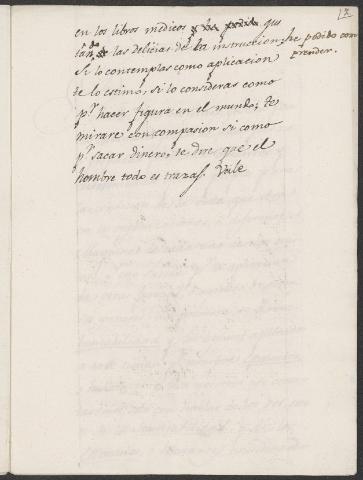 17
en los libros medicos y he podido que
son las delicias de la instruccion, he podido com
prender.
Si lo contemplas como aplicacion
te lo estimo, si lo consideras como
p.ʳ hacer figura en el mundo, te
mirare con compasion si como
p.ʳ sacar dinero, te dire que el
hombre todo es trazas. Vale